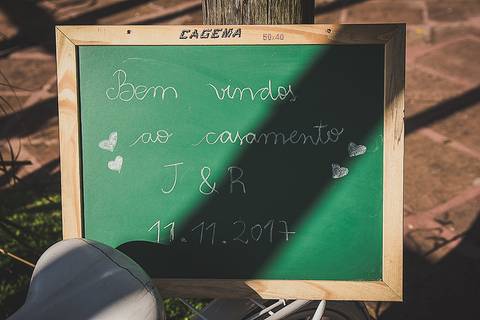 CAGEMA 50x40
Bem vindos
ao casamento
J & R
11.11.2017